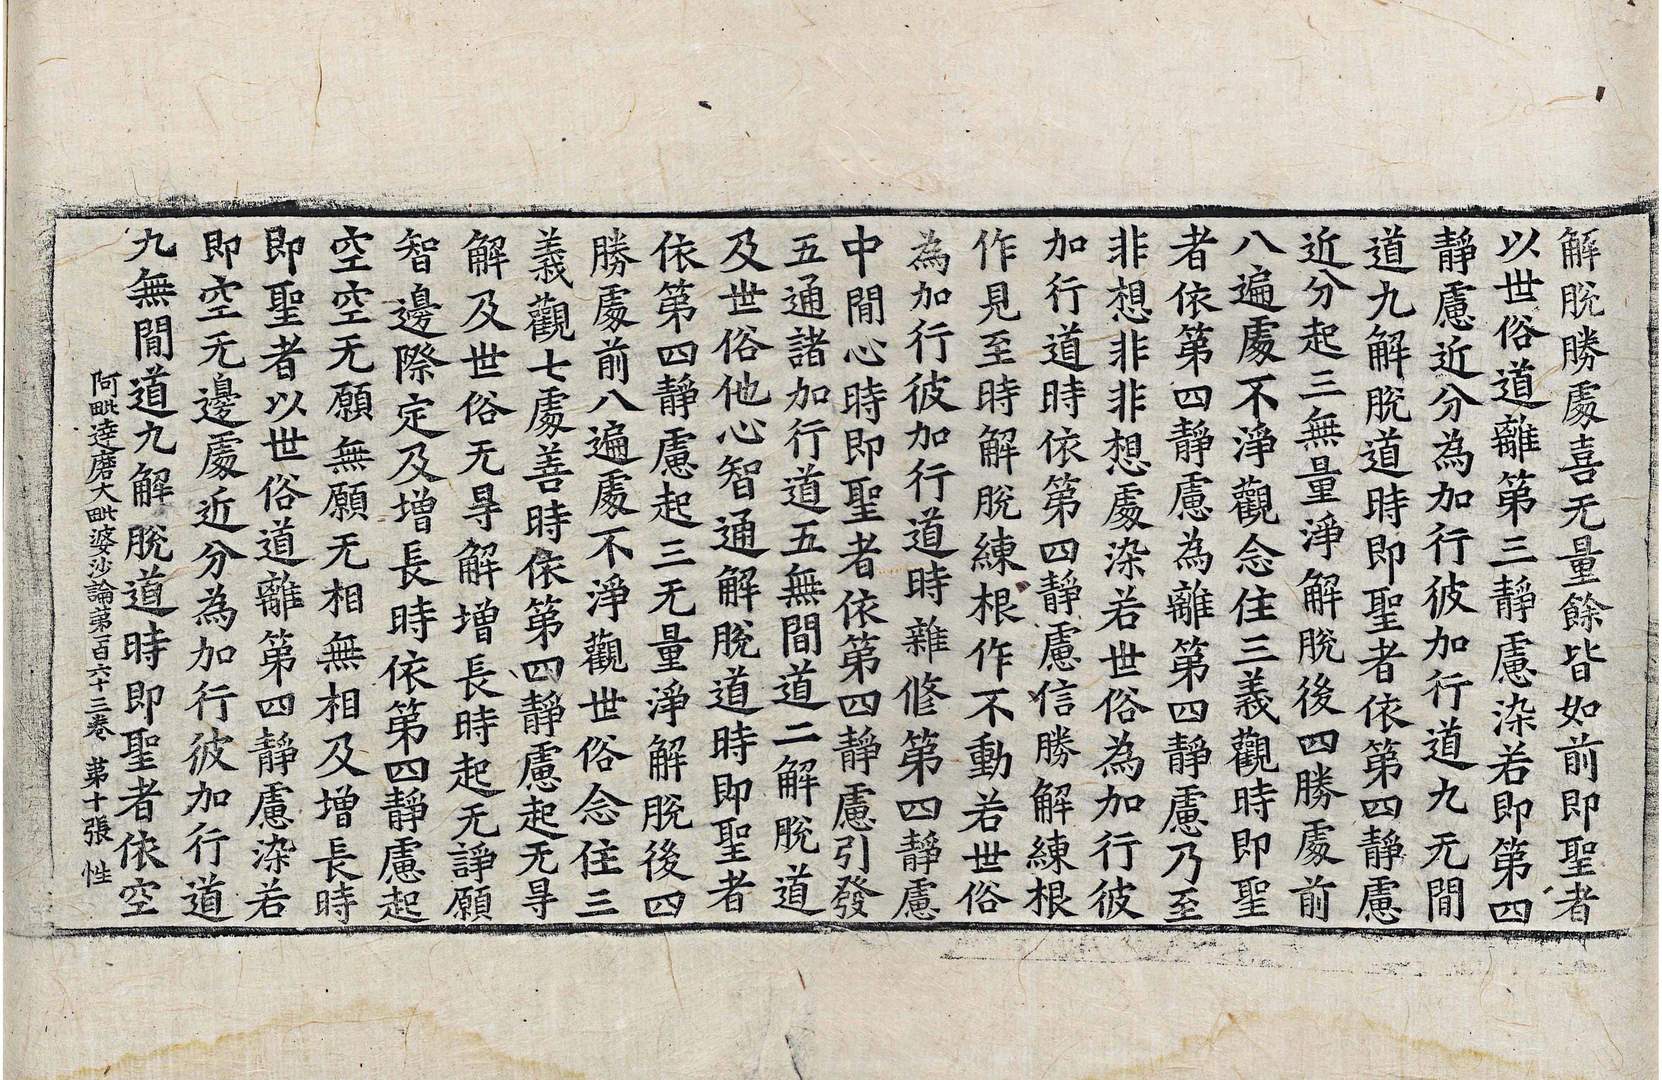 解脫勝處喜无量餘皆如前即聖者
以世俗道離第三靜慮染若即第四
靜慮近分為加行彼加行道九无間
道九解脫道時即聖者依第四靜慮
近分起三無量淨解脫後四勝處前
八遍處不淨觀念住三義觀時即聖
者依第四靜慮為離第四靜慮乃至
非想非非想處染若世俗為加行彼
加行道時依第四靜慮信勝解練根
作見至時解脫練根作不動若世俗
為加行彼加行道時雜修第四靜慮
中間心時即聖者依第四靜慮引發
五通諸加行道五無間道二解脫道
及世俗他心智通解脫道時即聖者
依第四靜慮起三无量淨解脫後四
勝處前八遍處不淨觀世俗念住三
義觀七處善時依第四靜慮起无㝵
解及世俗无㝵解增長時起无諍願
智邊際定及增長時依第四靜慮起
空空无願無願无相無相及增長時
即聖者以世俗道離第四靜慮染若
即空无邊處近分為加行彼加行道
九無間道九解脫道時即聖者依空
阿毗達磨大毗婆沙論第百六十三卷 苐十張 性